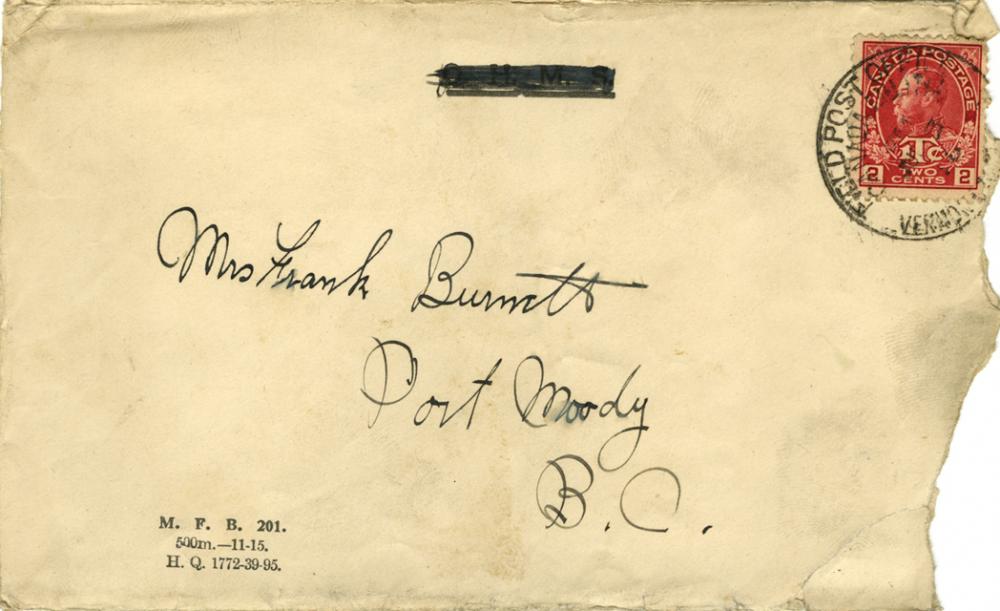 O. H. M. S.
CANADA POSTAGE
1Tc
2 TWO CENTS 2
FIELD POST OFFICE
Mrs Frank Burnett
Port Moody
B.C.
M. F. B. 201.
500m.—11-15.
H. Q. 1772-39-95.